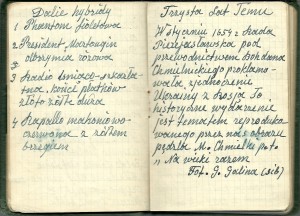 Dalie hybridy
1 Phantom fioletowa
2 President, Martaugin
olbrzymia różowa
3 Radio
końce płatków
złoto żółte duża
4 Kapelle mahoniowo
czerwona z żółtem
brzegiem
Trzysta Lat Temu
W styczniu 1654 r Rada
Perejasławska pod
przewodnictwem Bohdana
Chmielnickiego proklamo-
wała zjednoczenie
Ukrainy z Rosją To
historyczne wydarzenie
jest tematem reproduko
wanego przez nas obrazu
pędzla M. Chmielki p.t.
„Na wieki razem
Fot. G. Galina